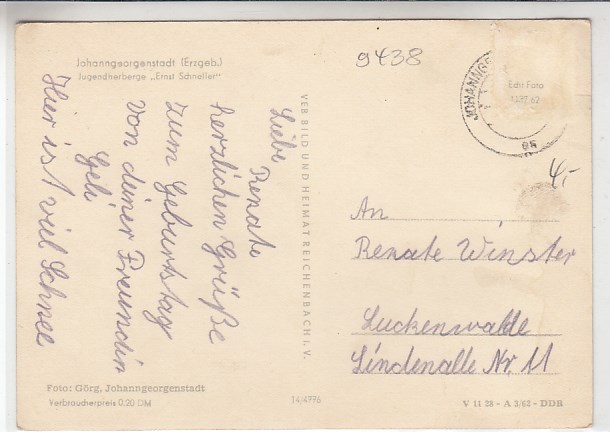 Johanngeorgenstadt (Erzgeb.)
Jugendherberge „Ernst Schneller"
9438
Liebe
Renate
herzlichen Grüße
zum Geburtstag
von deiner Freundin
Geli
Hier ist viel Schnee
VEB BILD UND HEIMAT REICHENBACH I. V.
JOHANNGE
Echt Foto
4,-
An
Renate Winster
Luckenwalde
Lindenalle Nr 11
Foto: Görg, Johanngeorgenstadt
Verbraucherpreis 0.20 DM
14/4776
V 11 28 - A 3/62 - DDR